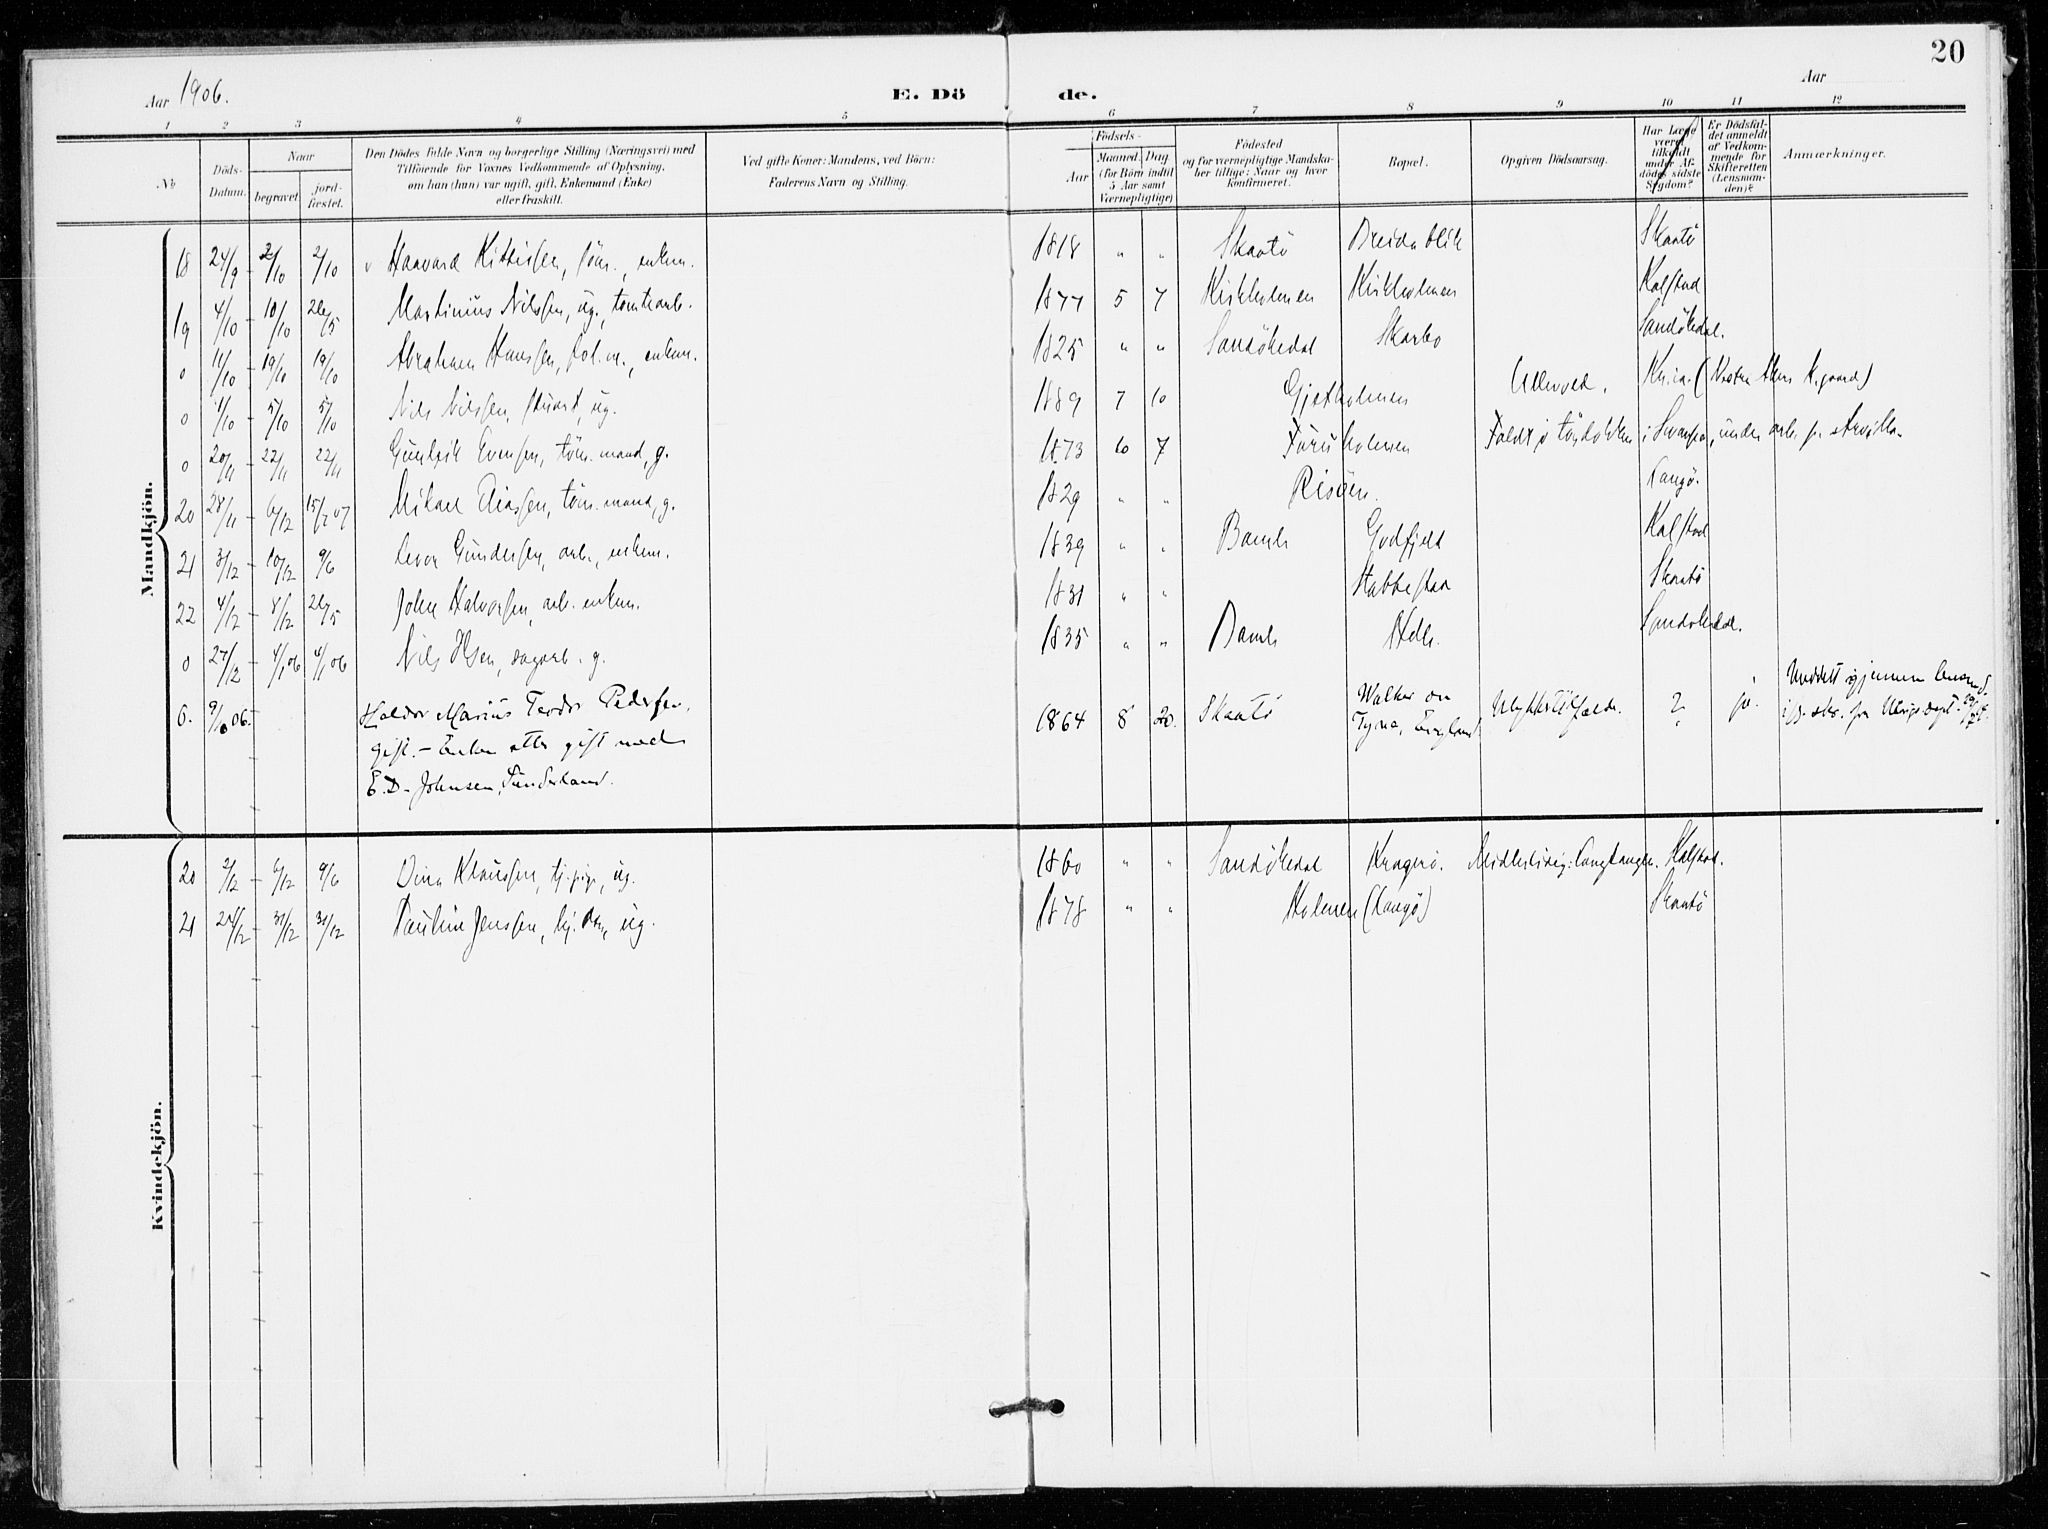 20
Aar 1906.
E. Dö de.
Aar
1 2 3 4 5 6 7 8 9 10 11 12
No
Döds-Datum.
Naar
begravet.
jord-fæstet.
Den Dödes fulde Navn og borgerlige Stilling (Næringsvei) med
Tilföiende for Voxnes Vedkommende af Oplysning,
om han (hun) var ugift, gift, Enkemand (Enke)
eller fraskilt.
Ved gifte Koner: Mandens, ved Börn:
Faderens Navn og Stilling.
Födsels-
Aar
Maaned. Dag
(for Börn indtil
5 Aar samt
Værnepligtige)
Födested
og for værnepligtige Mandska-
ber tillige: Naar og hvor
konfirmeret.
Bopæl.
Opgiven Dödsaarsag.
Har Læge
været
tilkaldt
under Af-
dödes sidste
Sygdom?
Er Dödsfal-
det anmeldt
af Vedkom-
mende for
Skifteretten
(Lensman-
den)?
Anmærkninger.
Mandkjön.
18 24/9 2/10 2/10 Haavard Kittilsen, enkem. 1818 " " Skaatö Breidablik Skaatö
19 4/10 10/10 26/5 Martinius Nilssen, ug., tomtearb. 1877 5 7 Kirkholmen Kirkholmen Kalstad
0 11/10 19/10 19/10 Abraham Hanssen, enkem. 1825 " " Sandökedal Skarbo Sandökedal.
0 1/10 5/10 5/10 Nils Nilssen, stuert, ug. 1889 7 10 Gjetholmen Ullevold. Kr.ia. (Vestre Akers k.gaard)
0 20/11 22/11 22/11 Gunleik Evensen, töm.mand, g. 1873 10 7 Furuholmen Faldt i tördokken i Svansea, under arb. p.
20 28/11 6/12 15/1 07 Mikael Eliassen, töm.mand, g. 1829 " " Risöen. Langö.
21 3/12 10/12 9/6 Levor Gundersen, arb., enkem. 1839 " " Bamle Godfjeld Kalstad
22 4/12 8/12 26/5 John Halvorsen, arb. enkem. 1831 " " Stabbestad Skaatö
0 27/12 4/1 06 4/1 06 Nils Olsen, dagarb. g. 1835 " " Bamle Sandökedal.
0. 9/6 06. Haldor Marius Teodor Pedersen, 1864 8 20. Skaatö Walker on Ulykkestilfælde. ? ja. Meddelt igjennem lensmd.
gift. – Enken atter gift med Tyne, England.
E. D. Johnsen, Sunderland.
Kvindekjön.
20 2/12 6/12 9/6 Dina Klaussen, tj.pige, ug. 1860 " " Sandökedal Kragerö. Midlertidig: Langtangen. Kalstad.
21 24/12 31/12 31/12 Pauline Jenssen, ug. 1878 " " Holmen (Langö) Skaatö